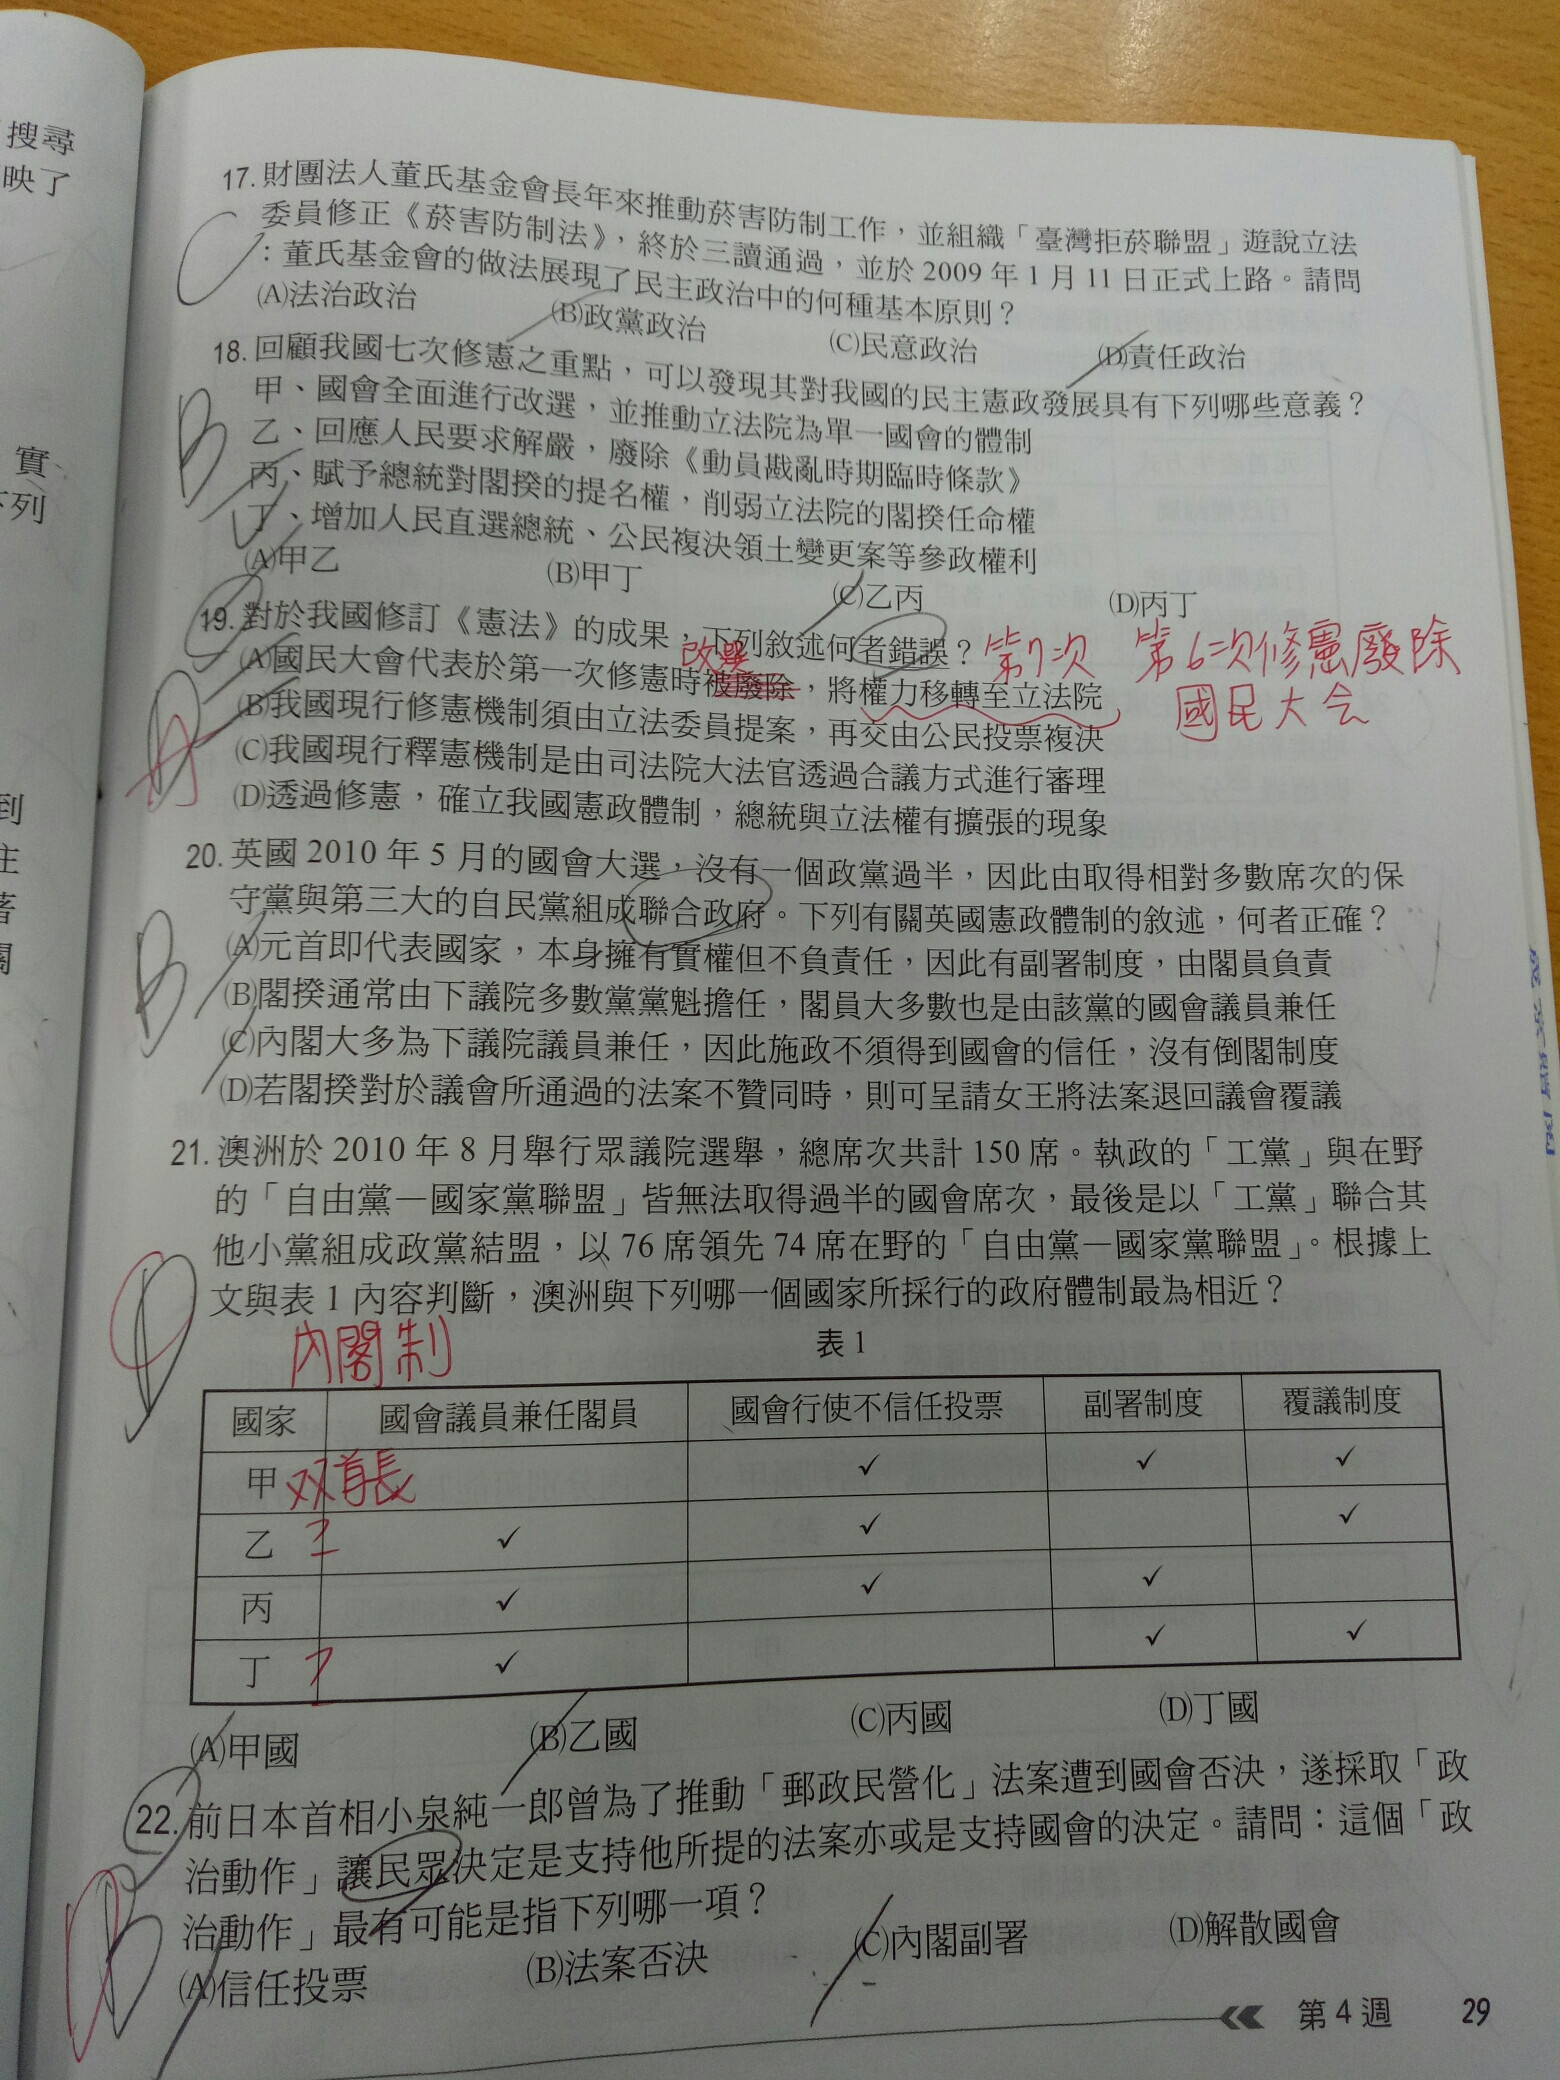 搜尋
映了
實
下列
到
主
著
閣
17. 財團法人董氏基金會長年來推動菸害防制工作，並組織「臺灣拒菸聯盟」遊說立法
委員修正《菸害防制法》，終於三讀通過，並於 2009 年 1 月 11 日正式上路。請問
：董氏基金會的做法展現了民主政治中的何種基本原則？
(A)法治政治 (B)政黨政治 (C)民意政治 (D)責任政治
C
18. 回顧我國七次修憲之重點，可以發現其對我國的民主憲政發展具有下列哪些意義？
甲、國會全面進行改選，並推動立法院為單一國會的體制
乙、回應人民要求解嚴，廢除《動員戡亂時期臨時條款》
丙、賦予總統對閣揆的提名權，削弱立法院的閣揆任命權
丁、增加人民直選總統、公民複決領土變更案等參政權利
(A)甲乙 (B)甲丁 (C)乙丙 (D)丙丁
B
19. 對於我國修訂《憲法》的成果，下列敘述何者錯誤？ 第7次 第6次修憲廢除
國民大會
改選
(A)國民大會代表於第一次修憲時被廢除，將權力移轉至立法院
(B)我國現行修憲機制須由立法委員提案，再交由公民投票複決
(C)我國現行釋憲機制是由司法院大法官透過合議方式進行審理
(D)透過修憲，確立我國憲政體制，總統與立法權有擴張的現象
A
20. 英國 2010 年 5 月的國會大選，沒有一個政黨過半，因此由取得相對多數席次的保
守黨與第三大的自民黨組成聯合政府。下列有關英國憲政體制的敘述，何者正確？
(A)元首即代表國家，本身擁有實權但不負責任，因此有副署制度，由閣員負責
(B)閣揆通常由下議院多數黨黨魁擔任，閣員大多數也是由該黨的國會議員兼任
(C)內閣大多為下議院議員兼任，因此施政不須得到國會的信任，沒有倒閣制度
(D)若閣揆對於議會所通過的法案不贊同時，則可呈請女王將法案退回議會覆議
B
21. 澳洲於 2010 年 8 月舉行眾議院選舉，總席次共計 150 席。執政的「工黨」與在野
的「自由黨—國家黨聯盟」皆無法取得過半的國會席次，最後是以「工黨」聯合其
他小黨組成政黨結盟，以 76 席領先 74 席在野的「自由黨—國家黨聯盟」。根據上
文與表 1 內容判斷，澳洲與下列哪一個國家所採行的政府體制最為相近？
內閣制
表 1
國家 國會議員兼任閣員 國會行使不信任投票 副署制度 覆議制度
甲 双首長 ✓ ✓ ✓
乙 ? ✓ ✓ ✓
丙 ✓ ✓ ✓
丁 ? ✓ ✓ ✓
(A)甲國 (B)乙國 (C)丙國 (D)丁國
22. 前日本首相小泉純一郎曾為了推動「郵政民營化」法案遭到國會否決，遂採取「政
治動作」讓民眾決定是支持他所提的法案亦或是支持國會的決定。請問：這個「政
治動作」最有可能是指下列哪一項？
(A)信任投票 (B)法案否決 (C)內閣副署 (D)解散國會
第 4 週 29